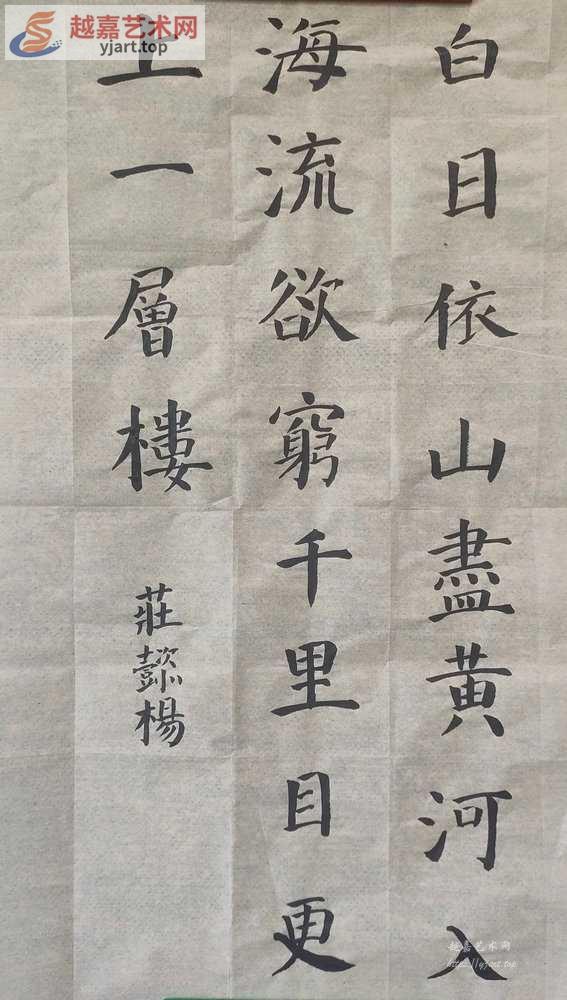 越嘉艺术网
yjart.top
白日依山盡黄河入
海流欲窮千里目更
上一層樓
莊懿楊
越嘉艺术网
https://yjart.top